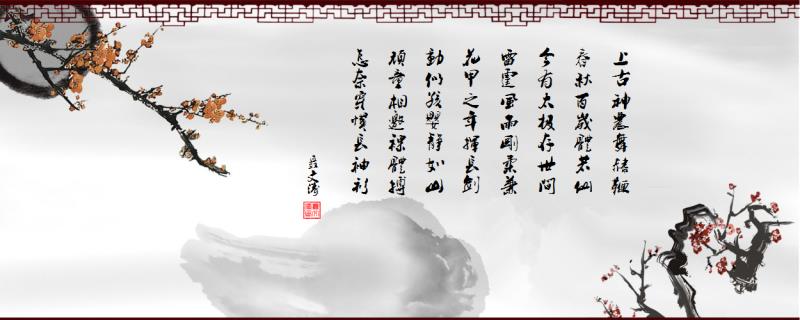 上古神農舞赭鞭
春秋百歲體若仙
今有太極存世間
雷霆風雨剛柔兼
花甲之年揮長劍
動似猿嬰靜如山
頑童相邀裸體搏
怎奈穿慣長袖衫
文濤